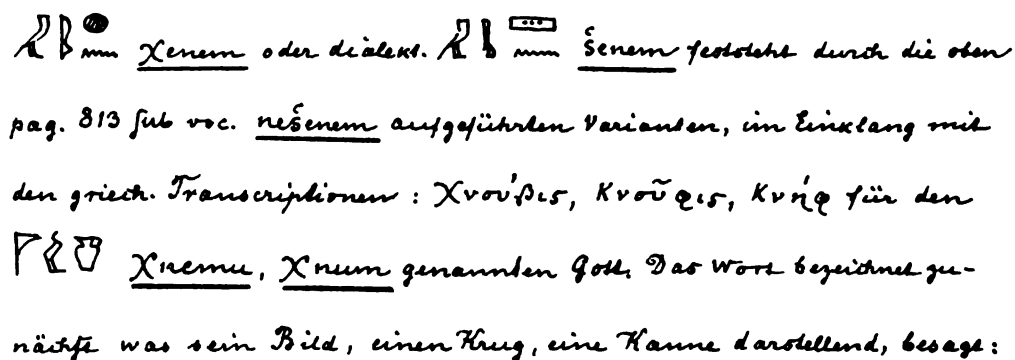 χenem oder dialekt. šenem feststeht durch die oben
pag. 813 sub voc. nešenem aufgeführten Varianten, im Einklang mit
den griech. Transcriptionen: Χνούβις, Κνοῦφις, Κνήφ für den
χnemu, χnum genannten Gott. Das Wort bezeichnet zu-
nächst was sein Bild, einen Krug, eine Kanne darstellend, besagt: